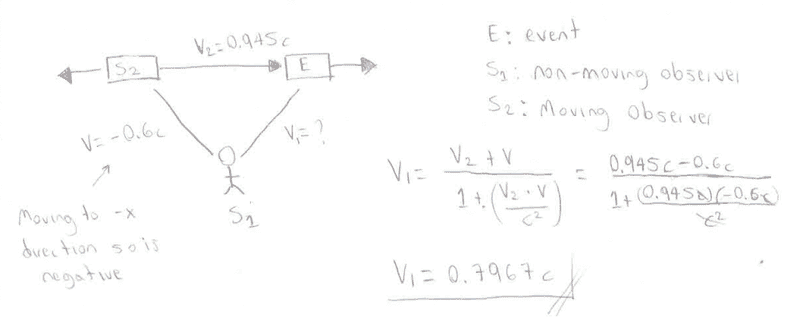 V₂=0.945c
S₂
E
V=-0.6c
V₁=?
S₁
Moving to -x
direction so is
negative
E: event
S₁: non-moving observer
S₂: Moving Observer
V₁= (V₂ + V) / (1+(V₂·V / c²)) = (0.945c-0.6c) / (1+(0.945c)(-0.6c) / c²)
V₁= 0.7967c